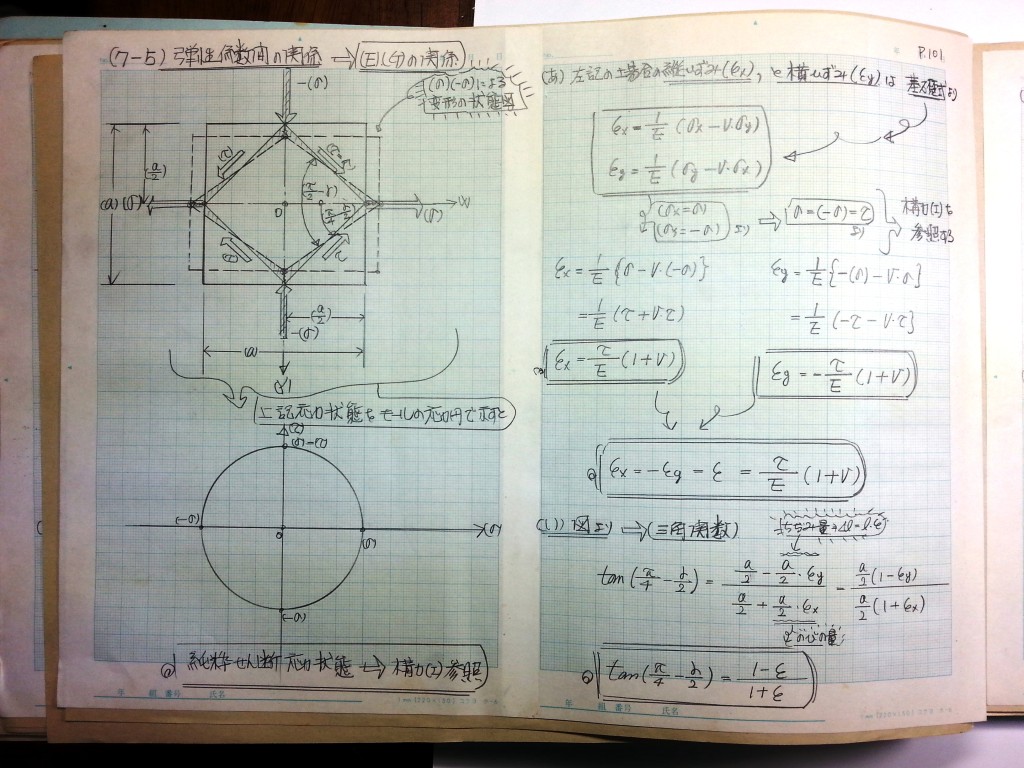 (7-5) 弾性係数間の関係 → (E)(G)の関係
(σ)(-σ)による
変形の状態図
-(σ)
(τ)
(τ=σ)
(a/2)
(a)
(σ)
(π/2-γ)
0
(x)
(σ)
(τ)
τ
(a/2)
-(σ)
(a)
(y)
上記応力状態をモールの応力円で示すと
(τ)
(σ)=(τ)
(-σ)
0
(σ)
(σ)
(-σ)
◎ 純粋せん断応力状態 → 構力(I)参照
年 組 番号 氏名
P.101
(あ) 左記の場合の縦ひずみ(εx), と横ひずみ(εy)は 基礎式より
εx = 1/E (σx - ν・σy)
εy = 1/E (σy - ν・σx)
(σx=σ)
(σy=-σ) より ⇒ σ=(-σ)=τ より
構力(I)を
参照する
εx = 1/E {σ - ν・(-σ)}
εy = 1/E {-(σ) - ν・σ}
= 1/E (τ + ν・τ)
= 1/E (-τ - ν・τ)
εx = τ/E (1+ν)
εy = -τ/E (1+ν)
◎ εx = -εy = ε = τ/E (1+ν)
(い) 図より → (三角関数)
ちぢみ量 Δl=l・ε
tan(π/4 - γ/2) = (a/2 - a/2・εy)/(a/2 + a/2・εx) = a/2(1-εy)/a/2(1+εx)
のびの量
◎ tan(π/4 - γ/2) = (1-ε)/(1+ε)
年 組 番号 氏名